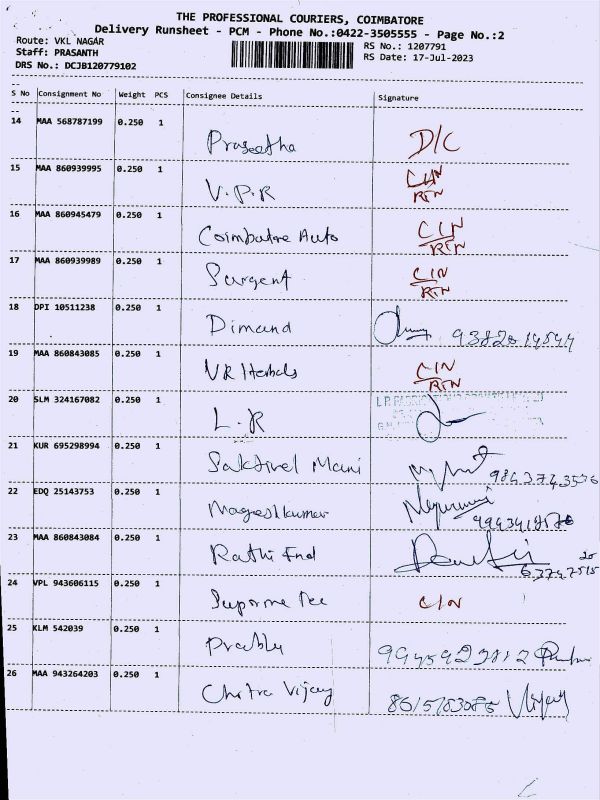 THE PROFESSIONAL COURIERS, COIMBATORE
Delivery Runsheet - PCM - Phone No.:0422-3505555 - Page No.:2
Route: VKL NAGAR
Staff: PRASANTH
DRS No.: DCJB120779102
RS No.: 1207791
RS Date: 17-Jul-2023
S No Consignment No Weight PCS Consignee Details Signature
14 MAA 568787199 0.250 1
Praseetha D/C
15 MAA 860939995 0.250 1
V.P.R C/N RTN
16 MAA 860945479 0.250 1
Coimbatore Auto C/N RTN
17 MAA 860939989 0.250 1
Sargent C/N RTN
18 DPI 10511238 0.250 1
Dimand
19 MAA 860843085 0.250 1
VR Herbals C/N RTN
20 SLM 324167082 0.250 1
L.R
21 KUR 695298994 0.250 1
Sakthivel Mani 9843743536
22 EDQ 25143753 0.250 1
Mageshkumar
23 MAA 860843084 0.250 1
Rathi Ind
24 VPL 943606115 0.250 1
C/N
25 KLM 542039 0.250 1
Prabhu
26 MAA 943264203 0.250 1
Chitra Vijay Vijay